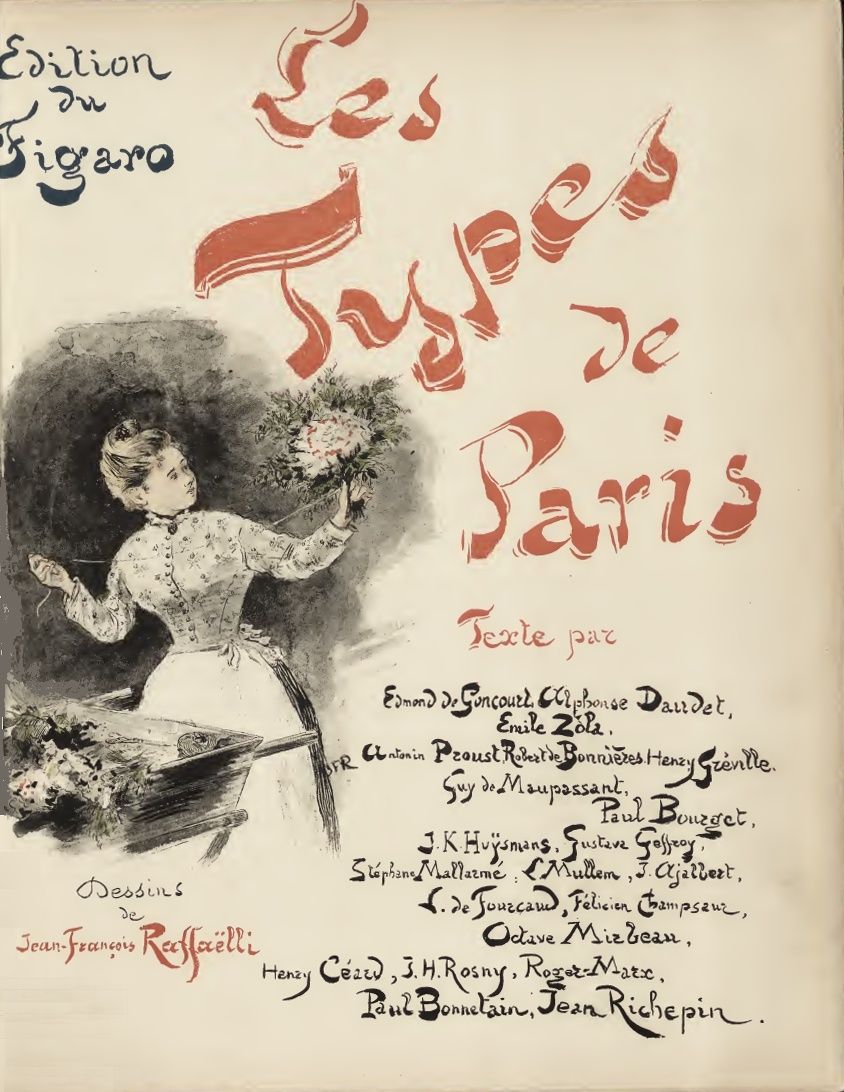 Edition
du
Figaro
Les
Types
de
Paris
Texte par
Edmond de Goncourt, Alphonse Daudet,
Emile Zola,
Antonin Proust, Robert de Bonnières, Henry Gréville.
Guy de Maupassant,
Paul Bourget,
J. K. Huÿsmans, Gustave Geffroy,
Stéphane Mallarmé, L. Mullem, J. Ajalbert,
L. de Fourcaud, Félicien Champsaur,
Octave Mirbeau,
Henry Céard, J. H. Rosny, Roger-Marx,
Paul Bonnetain, Jean Richepin.
JFR
Dessins
de
Jean-François Raffaëlli